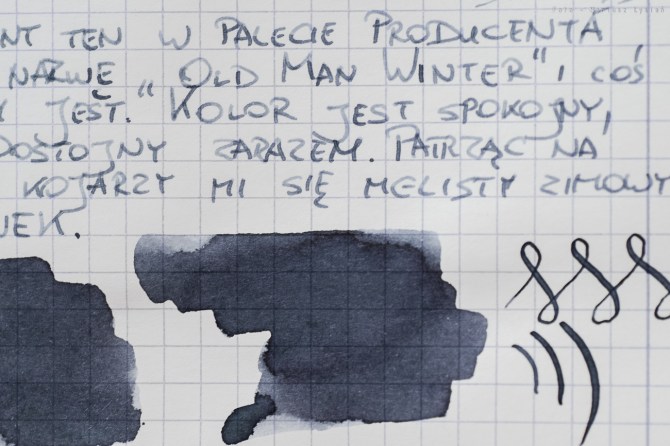 NT TEN W PALECIE PRODUCENTA
NAZWĘ "OLD MAN WINTER" I COŚ
JEST." KOLOR JEST SPOKOJNY,
DOSTOJNY ZARAZEM. PATRZĄC NA
KOJARZY MI SIĘ MGLISTY ZIMOWY
NEK.